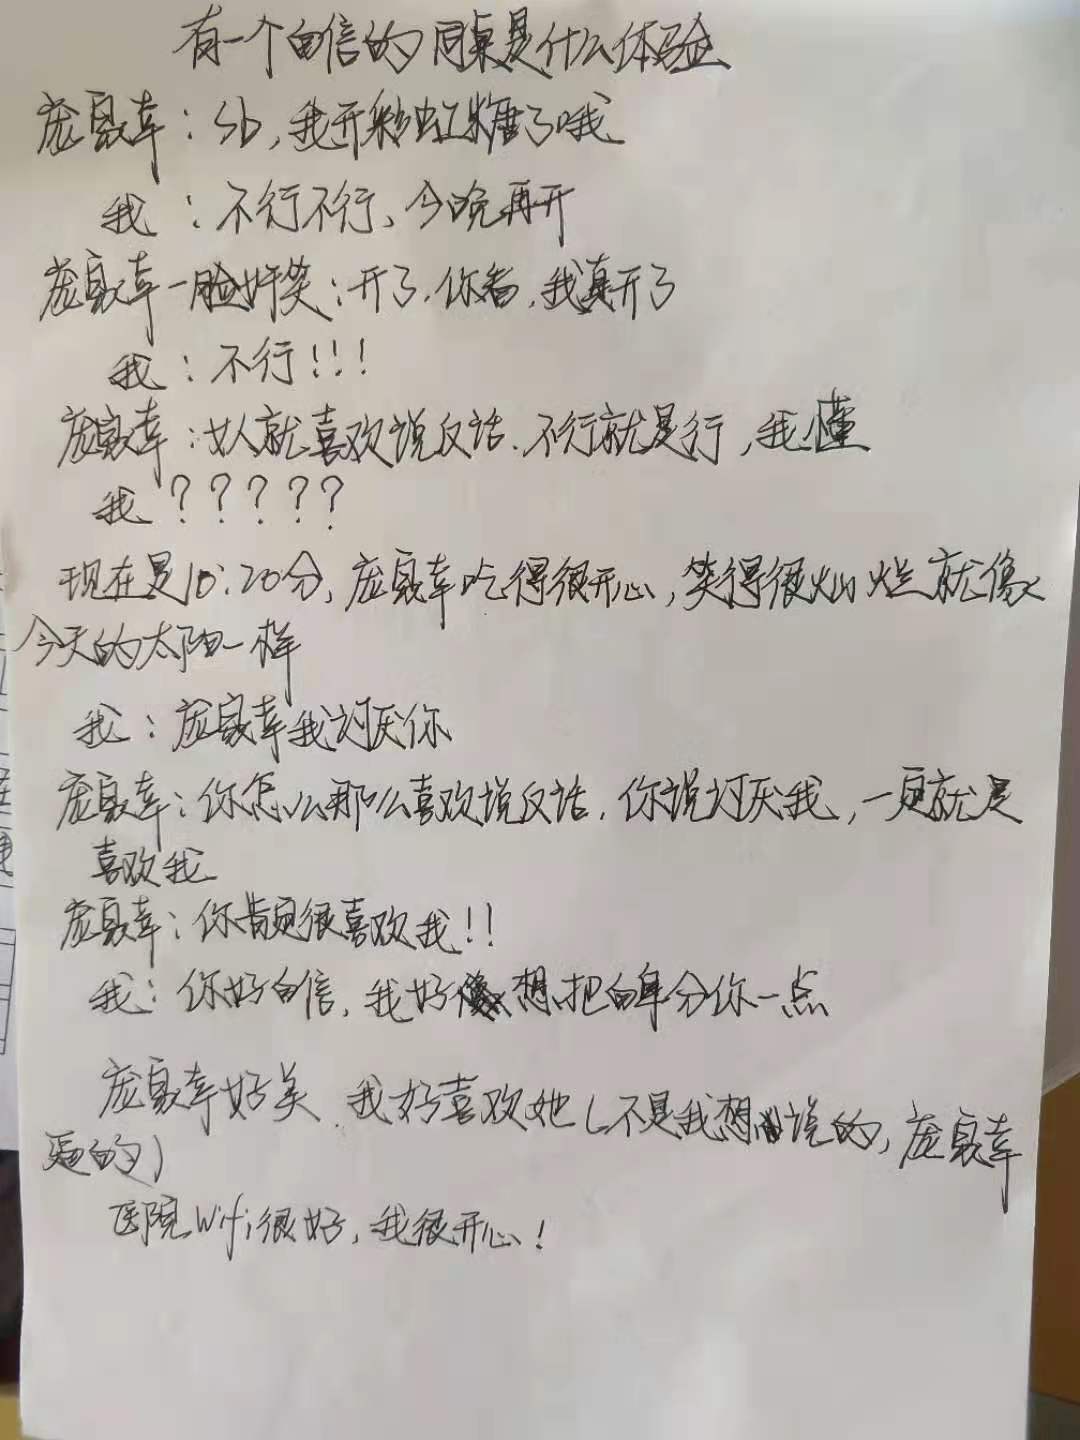 有一个自信的同桌是什么体验
庞夏幸：sb，我开彩虹糖了哦
我：不行不行、今晚再开
庞夏幸一脸奸笑：开了.你看，我真开了
我：不行!!!
庞夏幸：女人就喜欢说反话.不行就是行，我懂
我?????
现在是10:20分，庞夏幸吃得很开心，笑得很灿烂就像
今天的太阳一样
我：庞夏幸我讨厌你
庞夏幸：你怎么那么喜欢说反话.你说讨厌我，一定就是
喜欢我
庞夏幸：你肯定很喜欢我!!
我：你好自信，我好想把自卑分你一点
庞夏幸好美.我好喜欢她(不是我想说的，庞夏幸
逼的)
医院Wifi很好，我很开心!